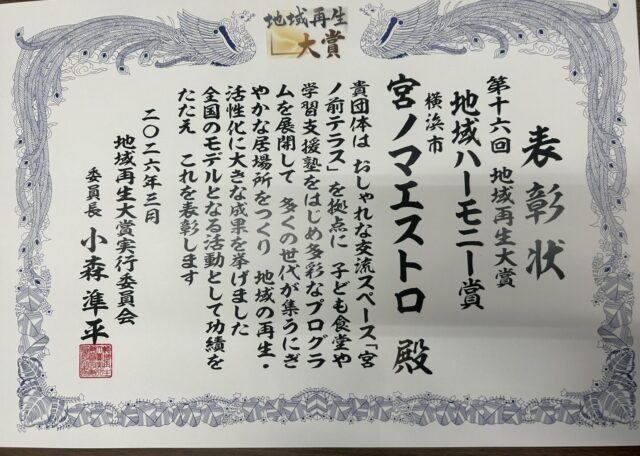 地域再生
大賞
表彰状
第十六回 地域再生大賞
地域ハーモニー賞
横浜市
宮ノマエストロ 殿
貴団体は おしゃれな交流スペース「宮
ノ前テラス」を拠点に 子ども食堂や
学習支援塾をはじめ多彩なプログラ
ムを展開して 多くの世代が集うにぎ
やかな居場所をつくり 地域の再生・
活性化に大きな成果を挙げました
全国のモデルとなる活動として功績を
たたえ これを表彰します
二〇二六年三月
地域再生大賞実行委員会
委員長 小森準平